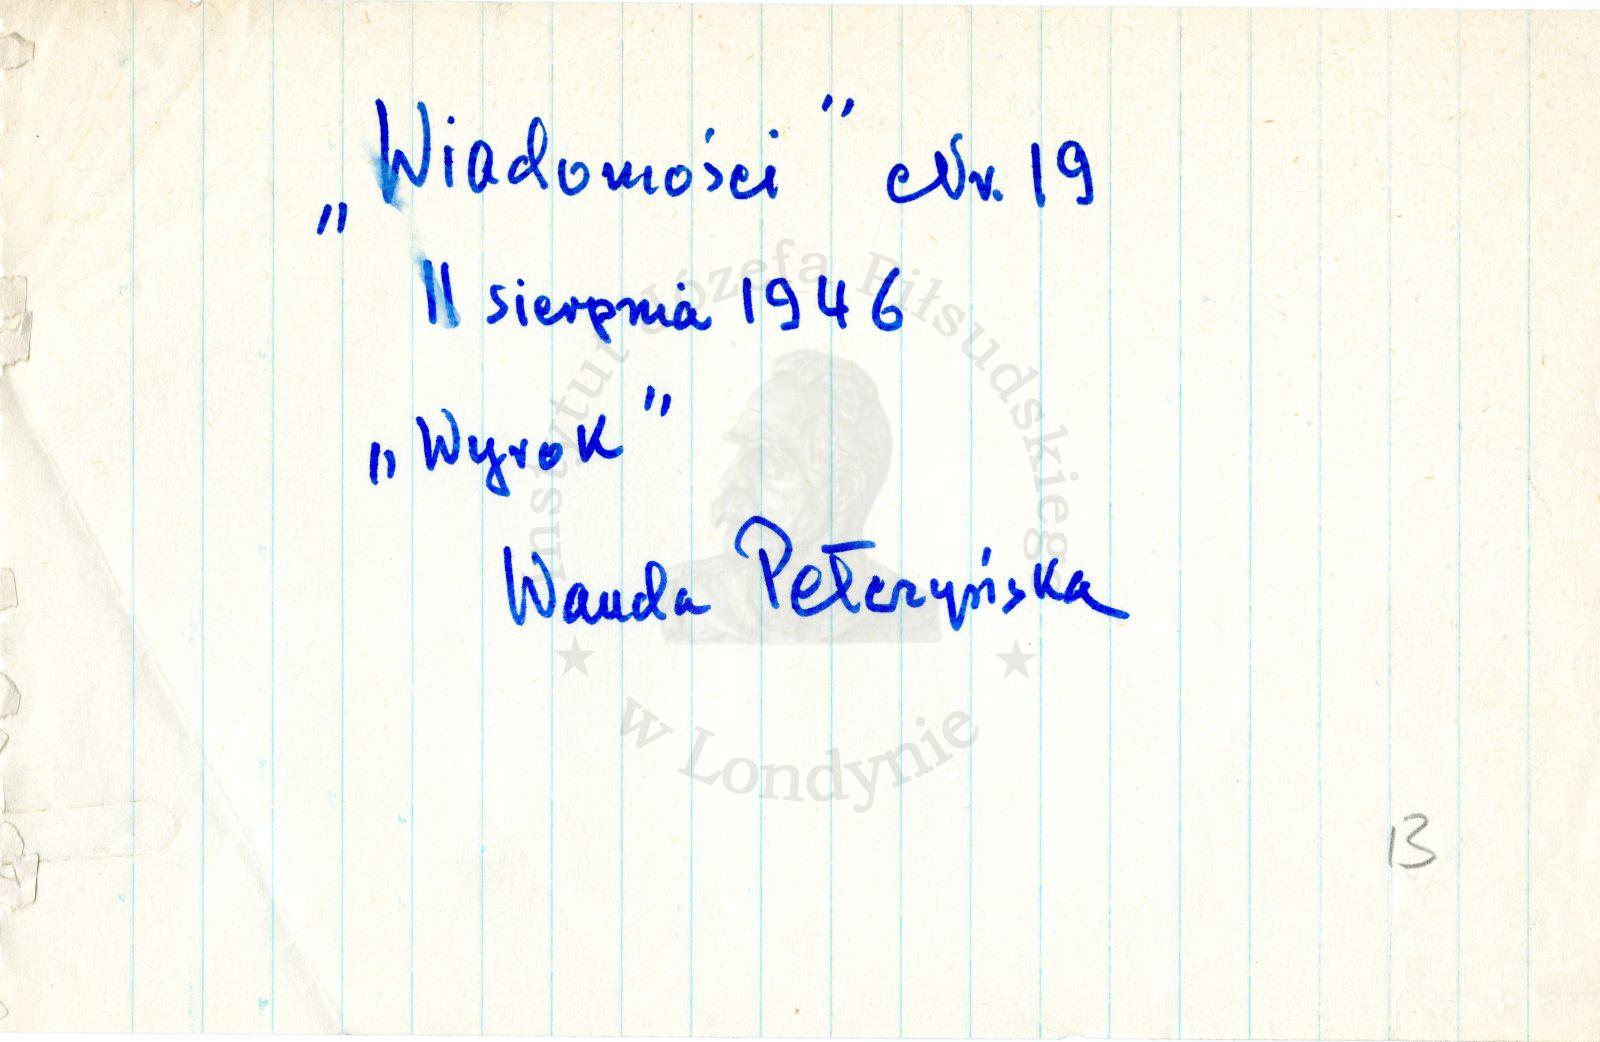 „Wiadomości” Nr. 19
11 sierpnia 1946
„Wyrok”
Wanda Pełczyńska
13
Instytut Józefa Piłsudskiego
w Londynie